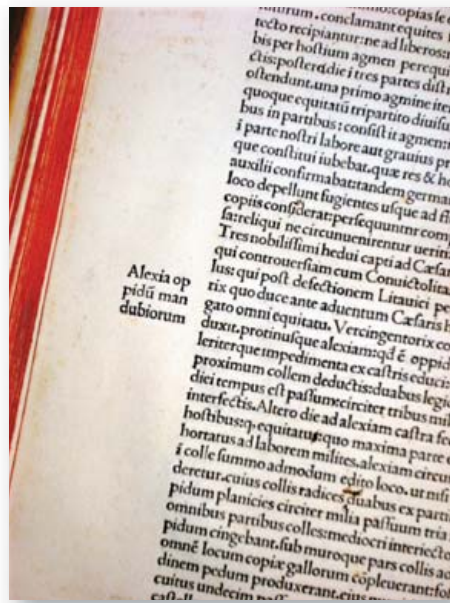 tuturum. conclamant equites
tecto recipiantur: ne ad liberos:
bis per hostium agmen perequi
ctis: postero die i tres partes distri
ostendunt. una primo agmine ite
quoque equitatū tripartito diuisu
bus in partibus: consistit agmen:
i parte nostri labore aut grauius pr
que constitui iubebat. quæ res & ho
auxilii confirmabat: tandem germa
loco depellunt fugientes usque ad fl
copiis considerat: persequuntur com
sa: reliqui ne circunuenirentur ueriti
Tres nobilissimi hedui capti ad Cæsar
qui controuersiam cum Conuictolita
lus: qui post defectionem Litauici pe
rix quo duce ante aduentum Cæsaris h
gato omni equitatu. Vercingentorix co
duxit. protinusque alexiam: qd ē oppid
leriterque impedimenta ex castris educi
proximum collem deductis: duabus legio
diei tempus est passum: circiter tribus mil
interfectis. Altero die ad alexiam castra fe
hostibus: q. equitatu: quo maxima parte
hortatus ad laborem milites. alexiam circun
i colle summo admodum edito loco. ut nisi
deretur. cuius collis radices duabus ex parti
pidum planicies circiter milia passuum tria
omnibus partibus colles: mediocri interiecto
pidum cingebant. sub muroque pars collis
omnē locum copiæ gallorum copleuerant: fos
dinem pedum produxerant. eius
cuitus undecim
Alexia op
pidū man
dubiorum